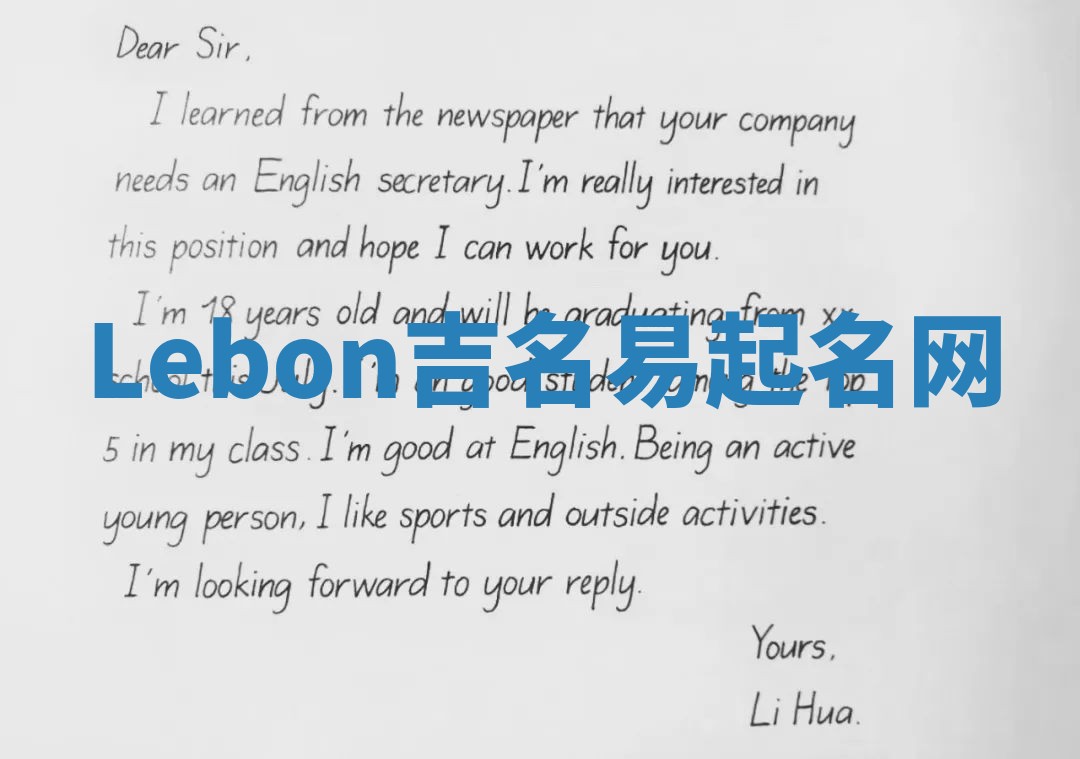 Dear Sir,
I learned from the newspaper that your company
needs an English secretary. I'm really interested in
this position and hope I can work for you.
I'm 18 years old and will be graduating from xx
Lebon吉名易起名网
school this July. I'm good student among the top
5 in my class. I'm good at English. Being an active
young person, I like sports and outside activities.
I'm looking forward to your reply.
Yours,
Li Hua.